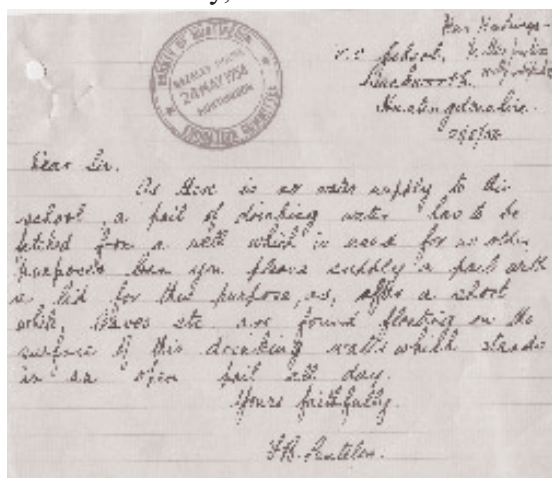 COUNTY OF HUNTINGDON
24 MAY 1958
HUNTINGDON
EDUCATION COMMITTEE
V.C School,
Huntingdonshire.
Dear Sir.
As there is no water supply to this
school, a pail of drinking water has to be
fetched from a well which is used for no other
purposes. Can you please supply a pail with
a lid for this purpose, as, after a short
while, leaves etc are found floating on the
surface of this drinking water which stands
in an open pail all day.
Yours faithfully.